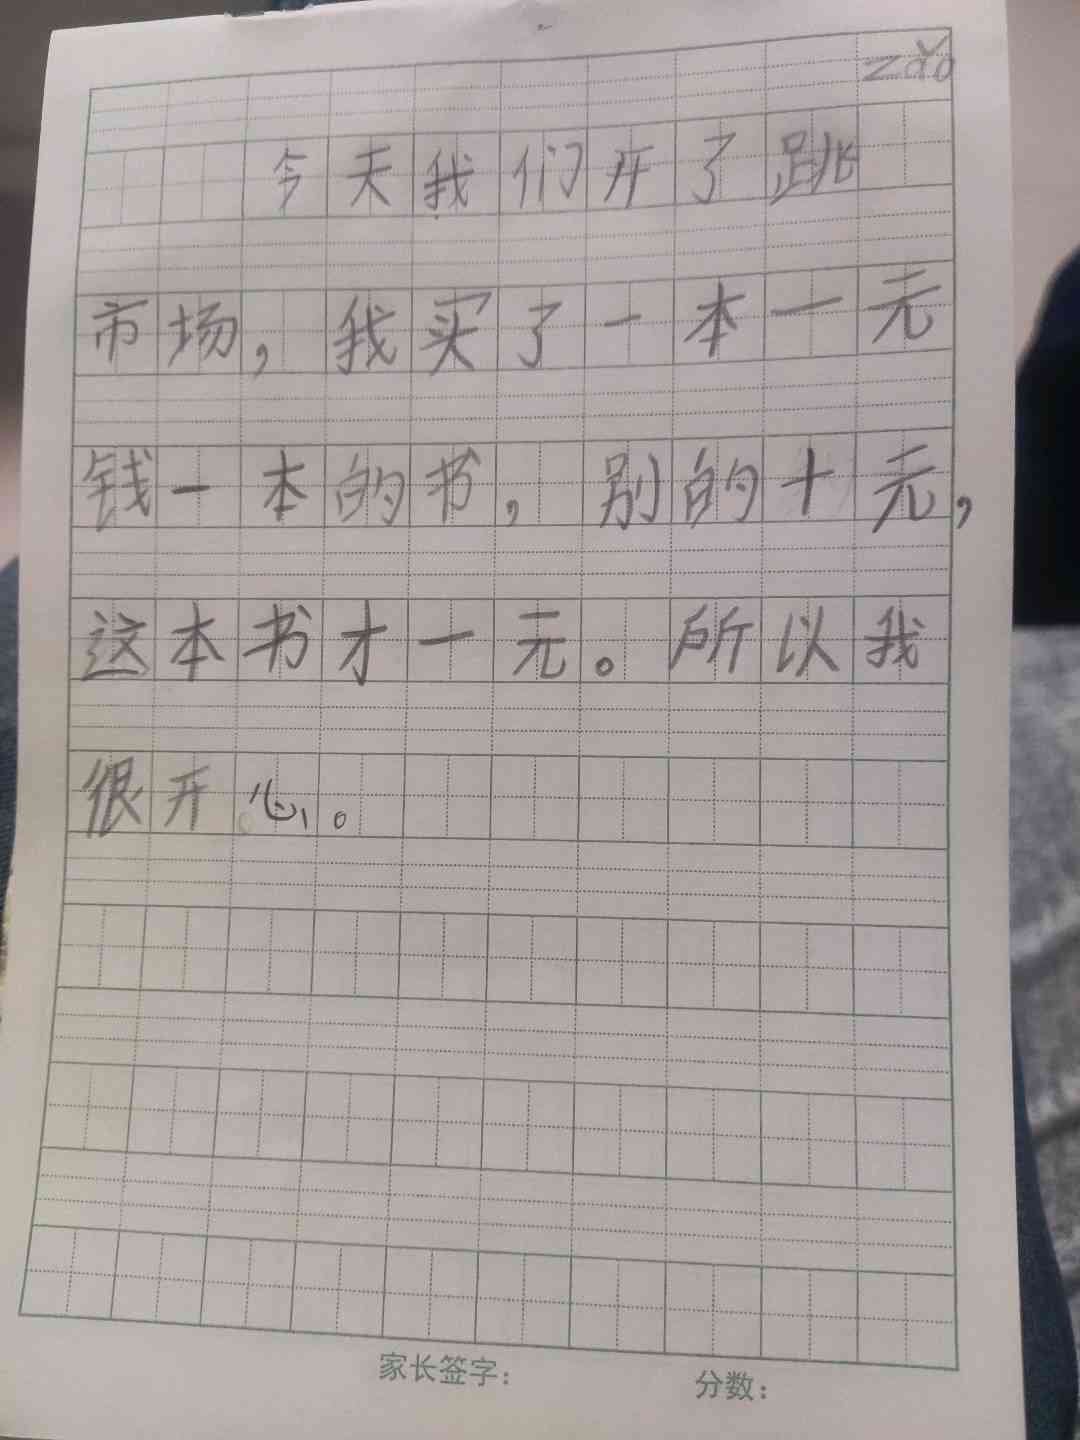 zǎo
今天我们开了跳
市场，我买了一本一元
钱一本的书，别的十元，
这本书才一元。所以我
很开心。
家长签字：
分数：